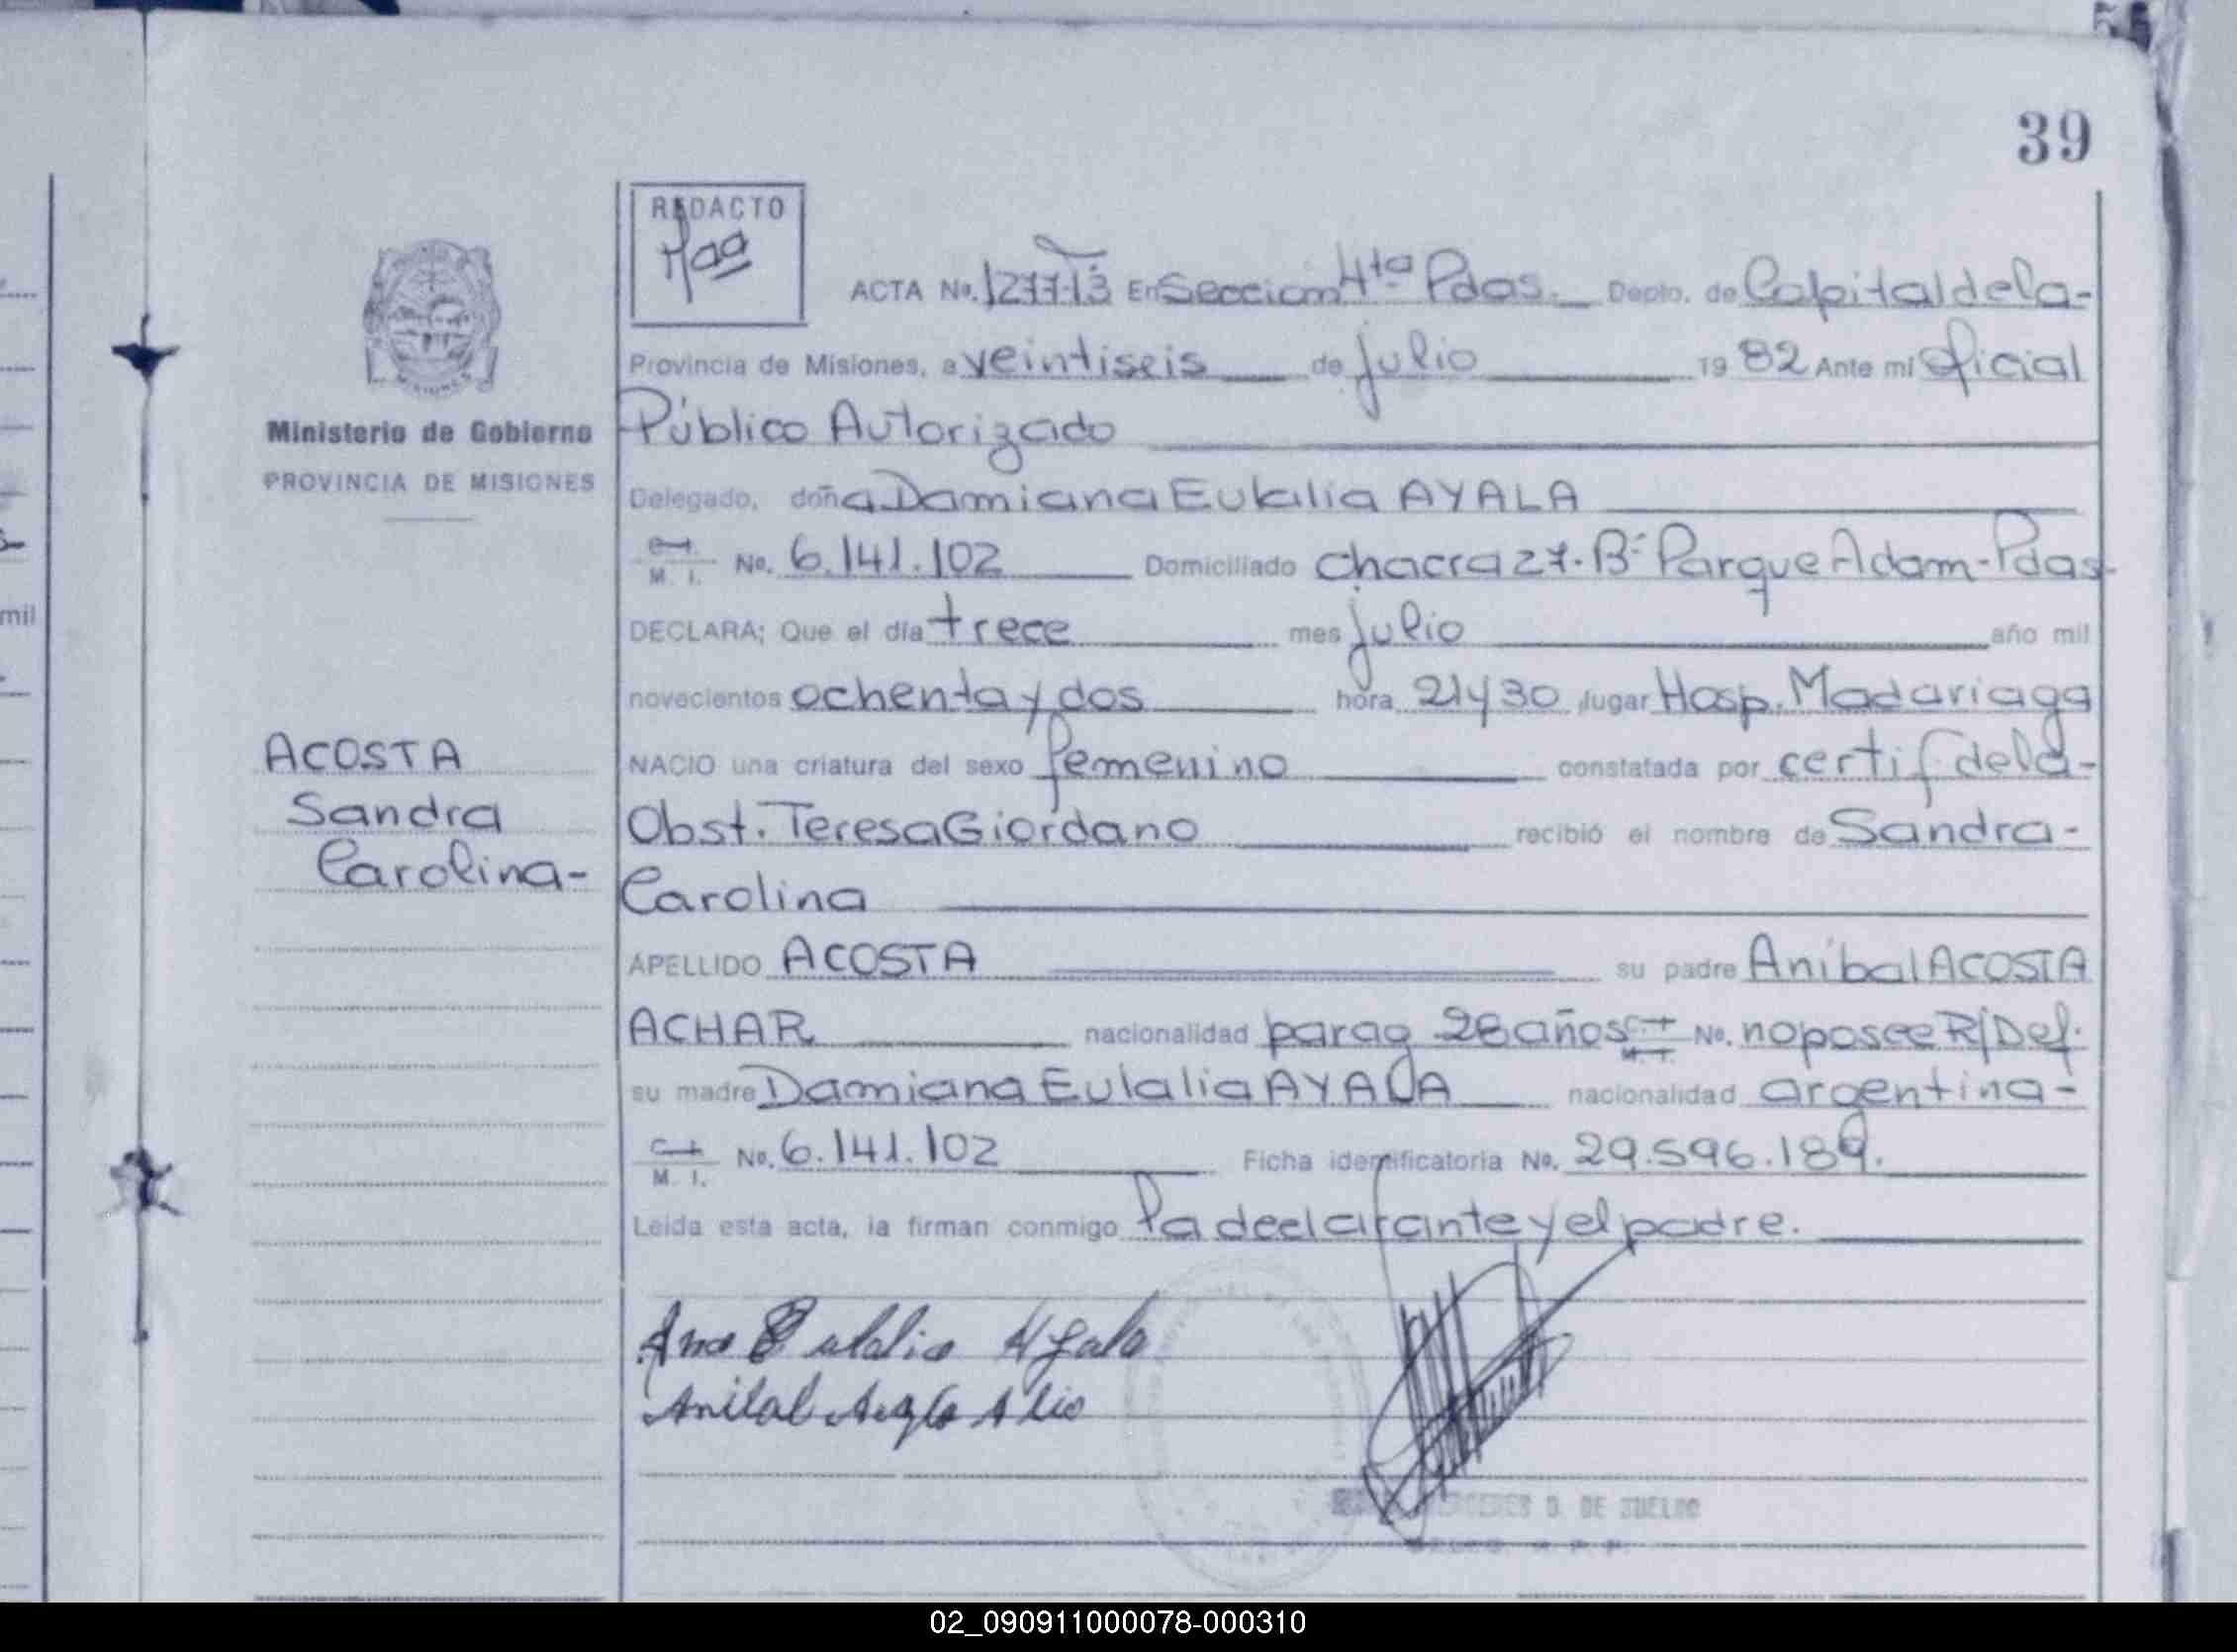 39
REDACTO
ACTA No. 1277-T3 En Sección 4ta Pdas. Depto. de Capital de la-
Provincia de Misiones, a veintiseis de julio 1982 Ante mi Oficial
Ministerio de Gobierno
Público Autorizado
PROVINCIA DE MISIONES
Delegado, doña Damiana Eulalia AYALA
M. I. No. 6.141.102 Domiciliado chacra 27. Bº Parque Adam-Pdas-
DECLARA; Que el día trece mes julio año mil
novecientos ochenta y dos hora 21 y 30 lugar Hosp. Madariaga
ACOSTA
Sandra
Carolina-
NACIO una criatura del sexo femenino constatada por certif de la-
Obst. Teresa Giordano recibió el nombre de Sandra-
Carolina
APELLIDO ACOSTA su padre Aníbal ACOSTA
ACHAR nacionalidad parag 28 años No. no posee R/Def.
su madre Damiana Eulalia AYALA nacionalidad argentina-
M. I. No. 6.141.102 Ficha identificatoria No. 29.596.189.
Leida esta acta, la firman conmigo la declarante y el padre.
Eulalia Ayala
Anibal
D. DE
mil
02_090911000078-000310